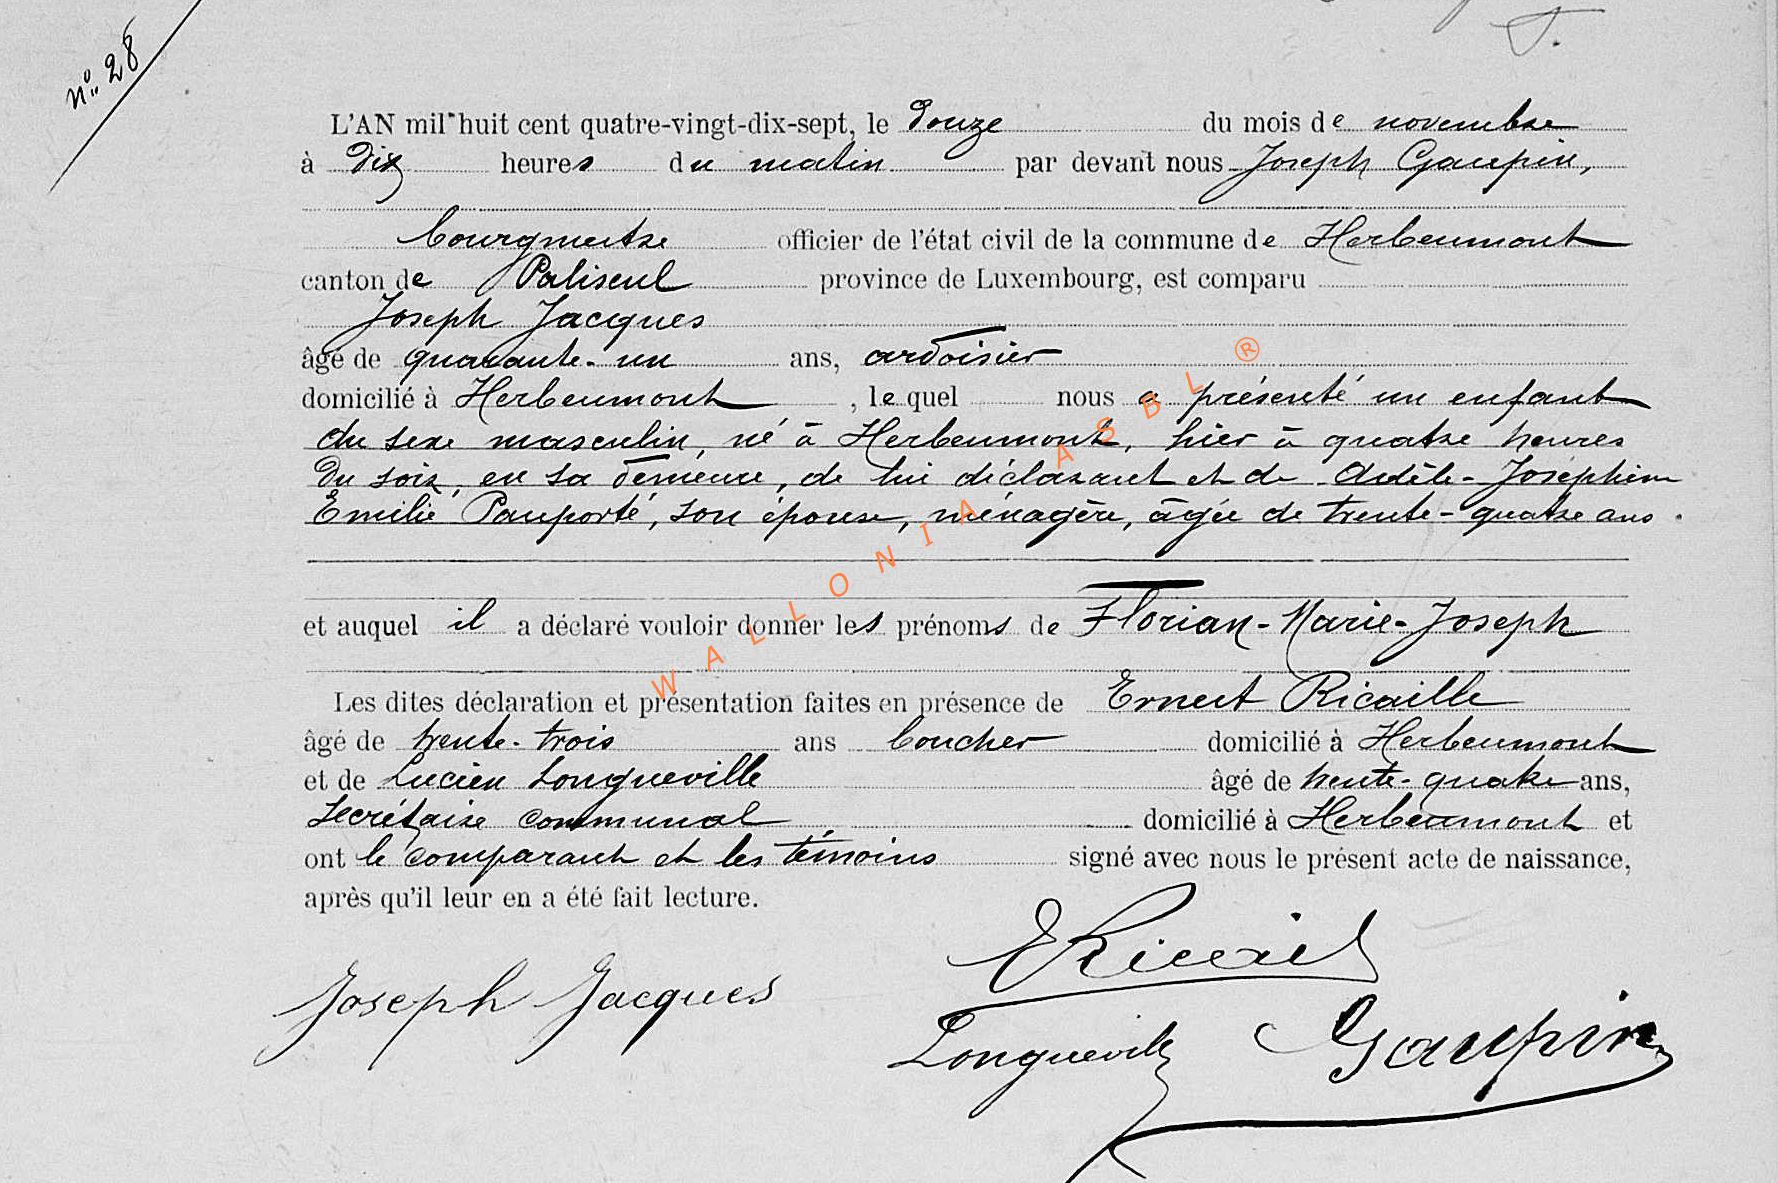 N° 28
L'AN mil huit cent quatre-vingt-dix-sept, le Douze du mois de novembre
à Dix heures du matin par devant nous Joseph Gaupin,
bourgmestre officier de l'état civil de la commune de Herbeumont
canton de Paliseul province de Luxembourg, est comparu
Joseph Jacques
âgé de quarante-un ans, ardoisier
domicilié à Herbeumont, lequel nous a présenté un enfant
du sexe masculin, né à Herbeumont, hier à quatre heures
Du soir, en sa demeure, de lui déclarant et de Adèle-Joséphine
Emilie Pauporté, son épouse, ménagère, âgée de trente-quatre ans.
et auquel il a déclaré vouloir donner les prénoms de Florian-Marie-Joseph
Les dites déclaration et présentation faites en présence de Ernest Ricaille
âgé de trente-trois ans boucher domicilié à Herbeumont
et de Lucien Longueville âgé de trente-quatre ans,
Secrétaire communal domicilié à Herbeumont et
ont le comparant et les témoins signé avec nous le présent acte de naissance,
après qu'il leur en a été fait lecture.
Joseph Jacques
Longueville Gaupin
WALLONIA ASBL ®